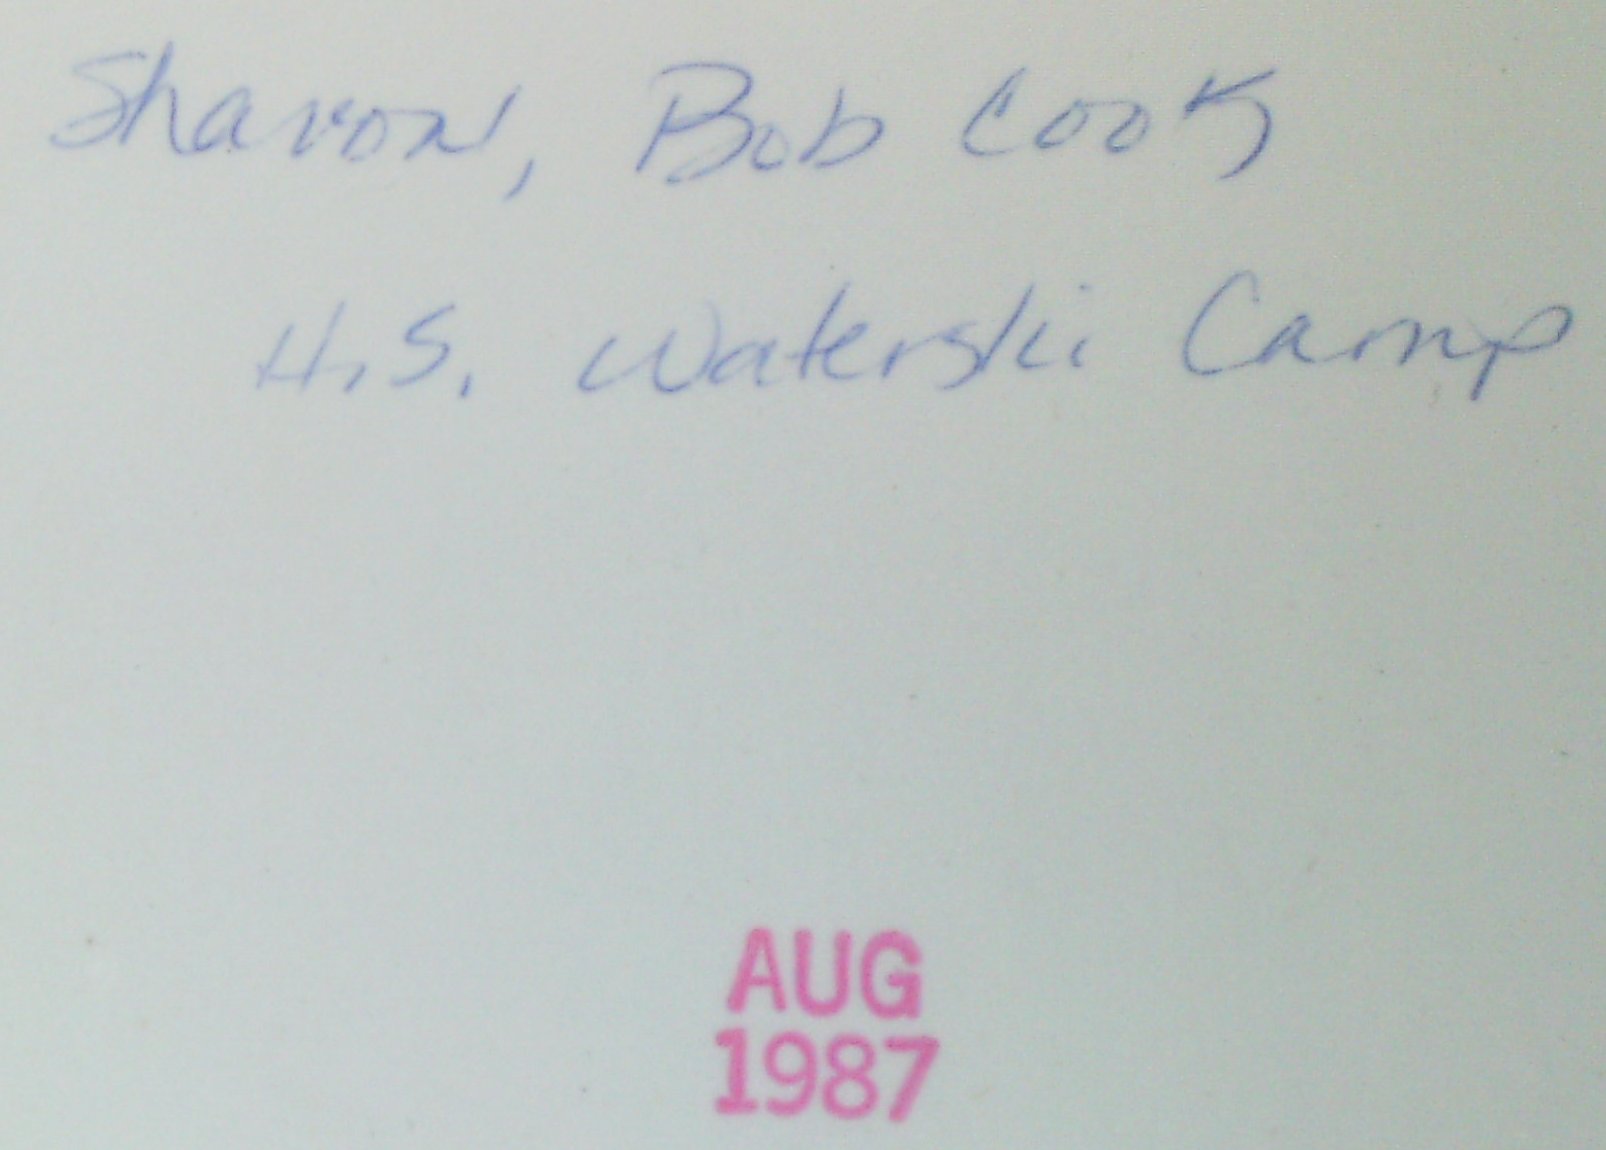 Sharon, Bob Cook
H.S. Waterski Camp
AUG
1987